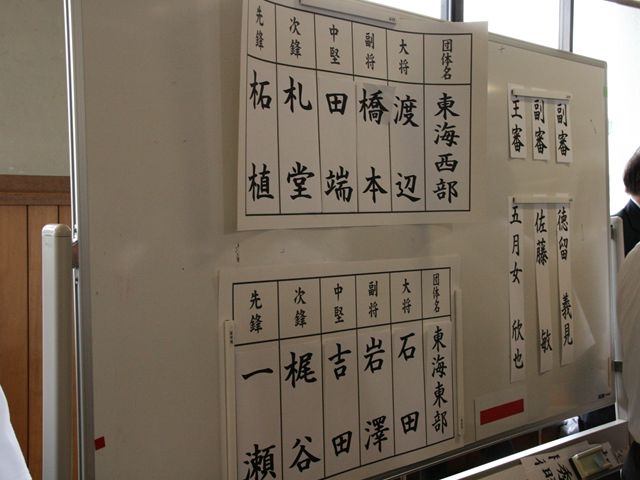 団体名 東海西部
大将 渡辺
副将 橋本
中堅 田端
次鋒 札堂
先鋒 柘植
団体名 東海東部
大将 石田
副将 岩澤
中堅 吉田
次鋒 梶谷
先鋒 一瀬
副審 徳留 義見
副審 佐藤 敏
主審 五月女 欣也